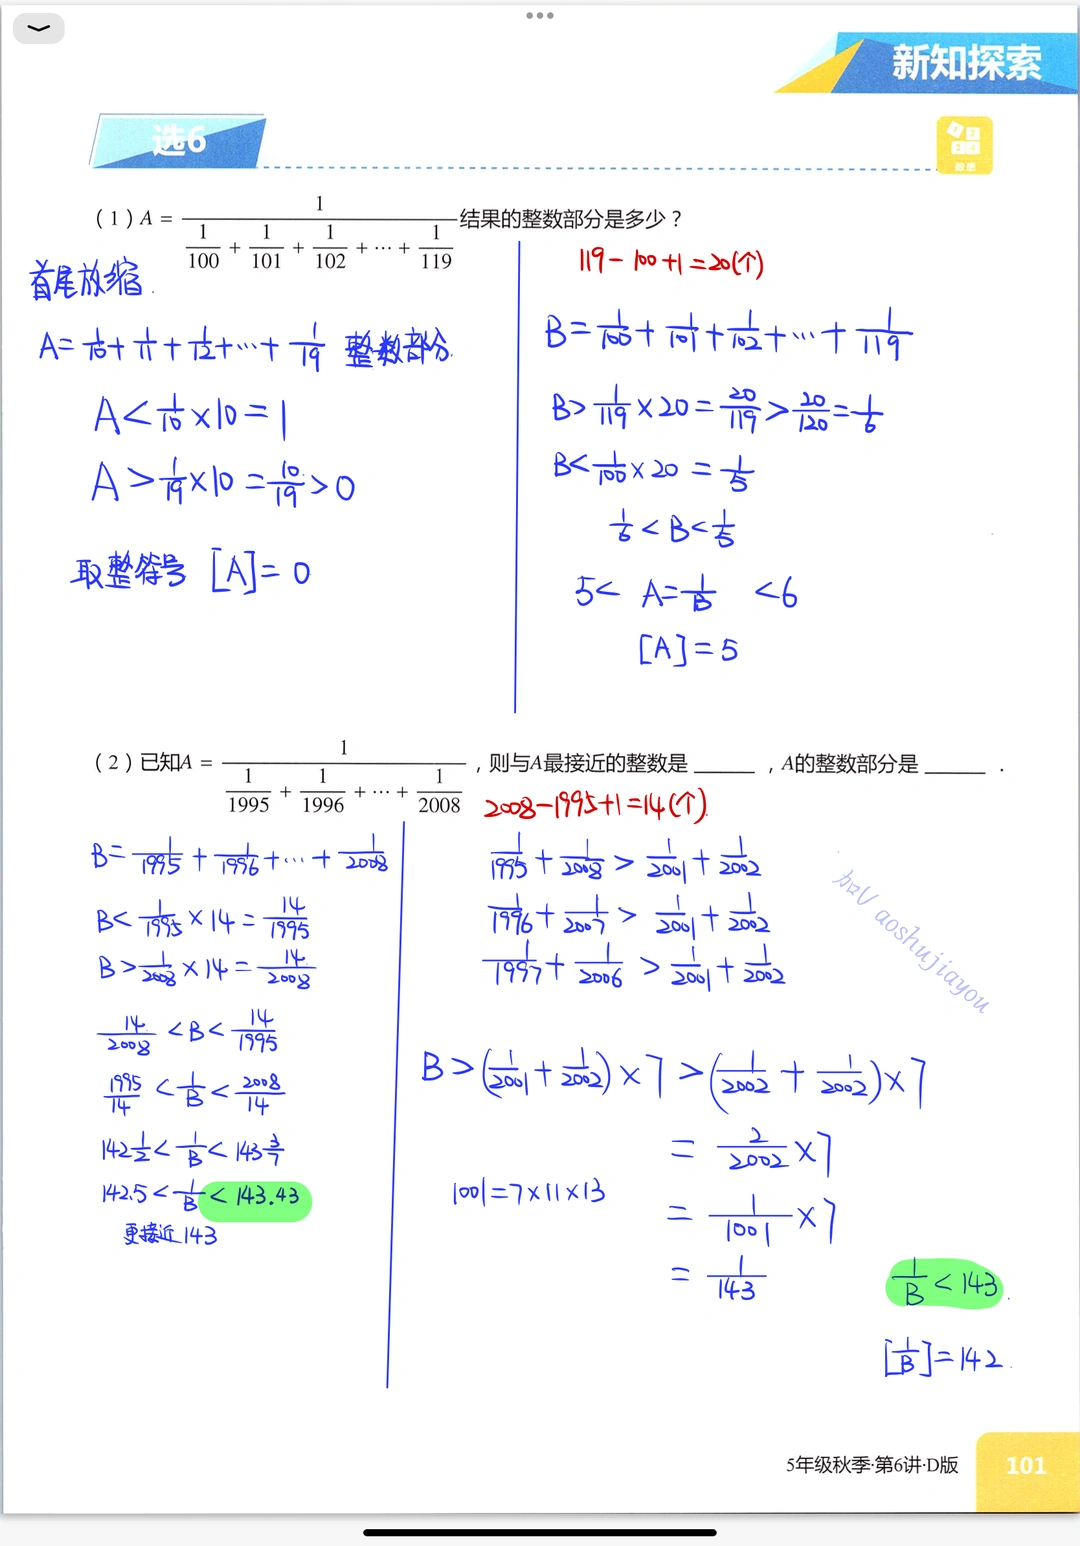 新知探索
选6
数论
(1) A = 1/(1/100 + 1/101 + 1/102 + ⋯ + 1/119) 结果的整数部分是多少？
119-100+1=20(个)
首尾放缩.
A = 1/10 + 1/11 + 1/12 + ⋯ + 1/19 整数部分.
A < 1/10 × 10 = 1
A > 1/19 × 10 = 10/19 > 0
取整符号 [A] = 0
B = 1/100 + 1/101 + 1/102 + ⋯ + 1/119
B > 1/119 × 20 = 20/119 > 20/120 = 1/6
B < 1/100 × 20 = 1/5
1/6 < B < 1/5
5 < A = 1/B < 6
[A] = 5
(2) 已知A = 1/(1/1995 + 1/1996 + ⋯ + 1/2008)，则与A最接近的整数是 ______ ，A的整数部分是 ______ .
2008-1995+1=14(个).
B = 1/1995 + 1/1996 + ⋯ + 1/2008
B < 1/1995 × 14 = 14/1995
B > 1/2008 × 14 = 14/2008
14/2008 < B < 14/1995
1995/14 < 1/B < 2008/14
142 1/2 < 1/B < 143 3/7
142.5 < 1/B < 143.43
更接近143
1/1995 + 1/2008 > 1/2001 + 1/2002
1/1996 + 1/2007 > 1/2001 + 1/2002
1/1997 + 1/2006 > 1/2001 + 1/2002
B > (1/2001 + 1/2002) × 7 > (1/2002 + 1/2002) × 7
= 2/2002 × 7
1001 = 7×11×13
= 1/1001 × 7
= 1/143
1/B < 143.
[1/B] = 142.
加V aoshujiayou
5年级秋季·第6讲·D版
101